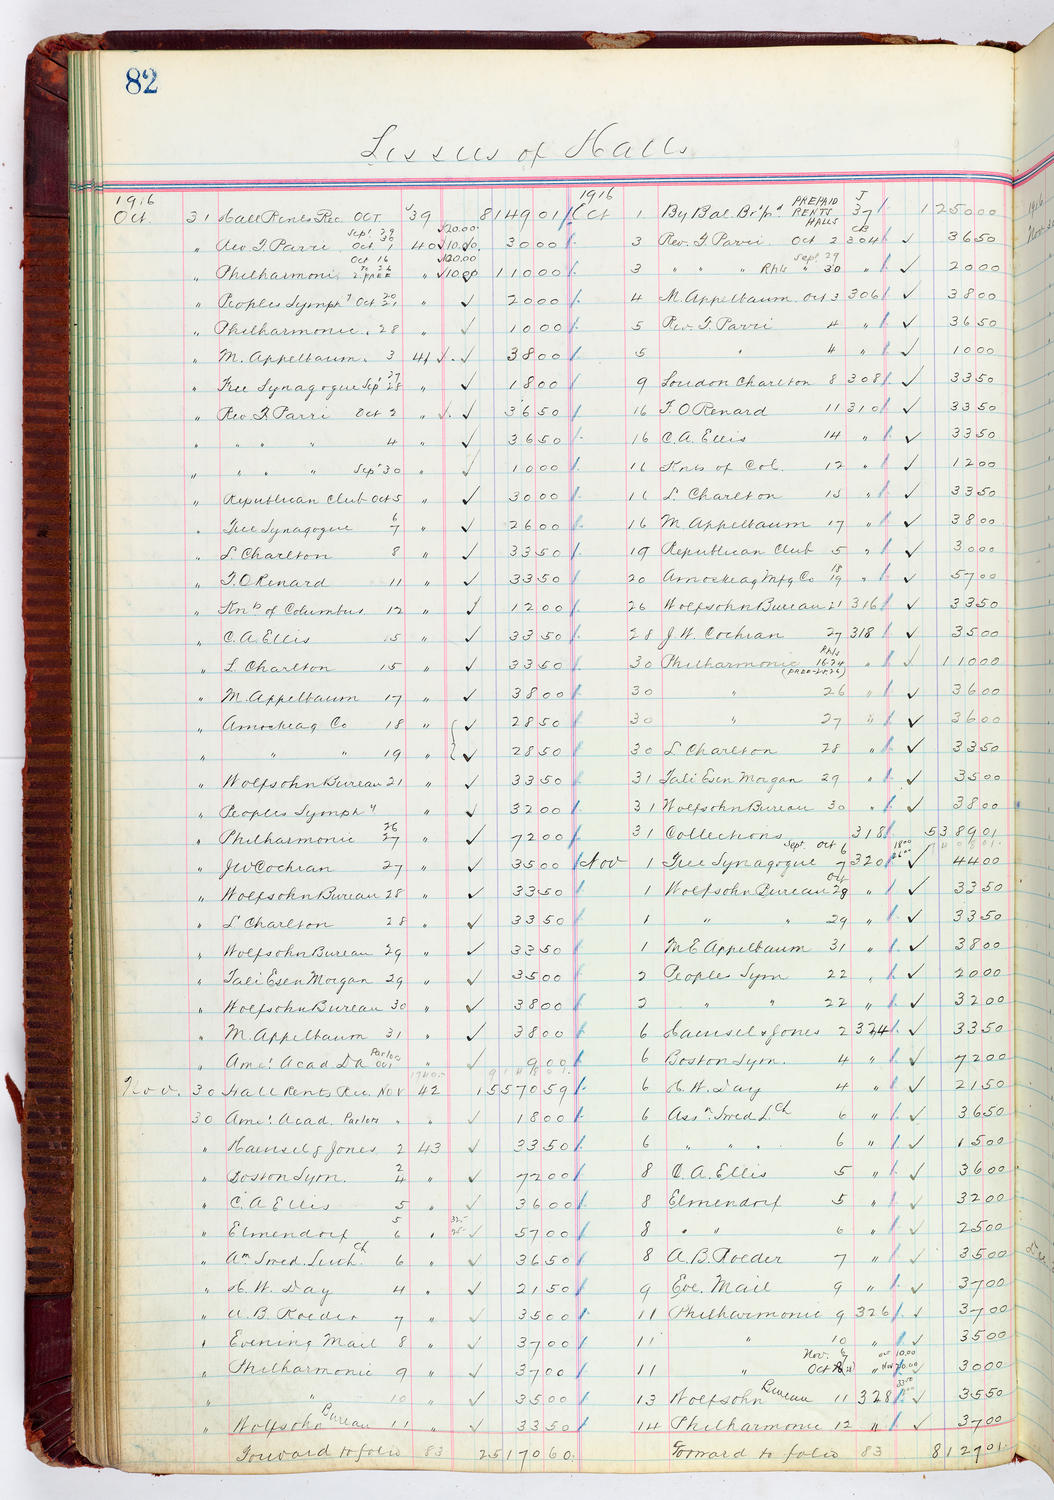 82
Lessees of Halls
1916 1916
Oct. 31 Hall Rents Rec. OCT. J39 814901 Oct 1 By Bal. Br't'd PREPAID RENTS HALLS J 37 125000
" Rev. F. Parri Sept. 29 30 Oct 1 40 20.00 10.00 3000 3 Rev. F. Parri. Oct 2 CB 304 ✓ 3650
" Philharmonic Oct 16 To 26 2 FREE " 100.00 10.00 11000 3 " " " Rhls Sept. 29 " 30 " ✓ 2000
" Peoples Symph'y Oct 20 21 " ✓ 2000 4 M. Appelbaum Oct 3 306 ✓ 3800
" Philharmonic " 28 " ✓ 1000 5 Rev. F. Parri 4 " ✓ 3650
" M. Appelbaum. " 3 41 ✓ ✓ 3800 5 " 4 " ✓ 1000
" Free Synagogue Sep' 27 28 " ✓ 1800 9 Loudon Charlton 8 308 ✓ 3350
" Rev F. Parri Oct 2 " ✓ ✓ 3650 16 F. O. Renard 11 310 ✓ 3350
" " " " 4 " ✓ 3650 16 C. A. Ellis 14 " ✓ 3350
" " " " Sep' 30 " ✓ 1000 16 Knts of Col. 12 " ✓ 1200
" Republican Club Oct 5 " ✓ 3000 16 L. Charlton 15 " ✓ 3350
" Free Synagogue 6 7 " ✓ 2600 16 M. Appelbaum 17 " ✓ 3800
" L. Charlton 8 " ✓ 3350 19 Republican Club 5 " ✓ 3000
" F. O. Renard 11 " ✓ 3350 20 Amoskeag Mfg Co 18 19 " ✓ 5700
" Knts of Columbus. 12 " ✓ 1200 26 Wolfsohn Bureau 21 316 ✓ 3350
" C. A. Ellis 15 " ✓ 3350 28 J. W. Cochran 27 318 ✓ 3500
" L. Charlton 15 " ✓ 3350 30 Philharmonic Rhls 16-24 (FREE-25, 26) " ✓ 11000
" M. Appelbaum 17 " ✓ 3800 30 " 26 " ✓ 3600
" Amoskeag Co 18 " ✓ 2850 30 " 27 " ✓ 3600
" " " 19 " ✓ 2850 30 L. Charlton 28 " ✓ 3350
" Wolfsohn Bureau 21 " ✓ 3350 31 Tali Esen Morgan 29 " ✓ 3500
" Peoples Symph'y " ✓ 3200 31 Wolfsohn Bureau 30 " ✓ 3800
" Philharmonic 26 27 " ✓ 7200 31 Collections 318 538901
" J W Cochran 27 " ✓ 3500 Nov 1 Free Synagogue Sept. Oct 6 7 320 18.00 26.00 ✓ 4400
" Wolfsohn Bureau 28 " ✓ 3350 1 Wolfsohn Bureau Oct 28 " ✓ 3350
" L. Charlton 28 " ✓ 3350 1 " " 29 " ✓ 3350
" Wolfsohn Bureau 29 " ✓ 3350 1 M. E. Appelbaum 31 " ✓ 3800
" Tali Esen Morgan 29 " ✓ 3500 2 Peoples Sym 22 " ✓ 2000
" Wolfsohn Bureau 30 " ✓ 3800 2 " " 22 " ✓ 3200
" M. Appelbaum 31 " ✓ 3800 6 Haensel & Jones 2 324 ✓ 3350
" Ame'. Acad Da Parlor Oct " ✓ 900 6 Boston Sym. 4 " ✓ 7200
Nov. 30 Hall Rents Rec. Nov 42 1557059 6 H. W. Day 4 " ✓ 2150
30 Ame'. Acad. Parlors " ✓ 1800 6 Assn. Swed. L.ch 6 " ✓ 3650
" Haensel & Jones 2 43 ✓ 3350 6 " " " 6 " ✓ 1500
" Boston Sym. 2 4 " ✓ 7200 8 C. A. Ellis 5 " ✓ 3600
" C. A. Ellis 5 " ✓ 3600 8 Elmendorf 5 " ✓ 3200
" Elmendorf 5 6 " 32.- 25.- ✓ 5700 8 " " 6 " ✓ 2500
" Am Swed. Luth. Ch 6 " ✓ 3650 8 A. B. Roeder 7 " ✓ 3500
" H. W. Day 4 " ✓ 2150 9 Eve. Mail 9 " ✓ 3700
" A. B. Roeder 7 " ✓ 3500 11 Philharmonic 9 326 ✓ 3700
" Evening Mail 8 " ✓ 3700 11 " 10 " ✓ 3500
Philharmonic 9 " ✓ 3700 11 " Nov. Oct " ✓ 3000
" " 10 " ✓ 3500 13 Wolfsohn Bureau 11 328 ✓ 3550
" Wolfsohn Bureau 11 " ✓ 3350 14 Philharmonic 12 " ✓ 3700
Forward to folio 83 2517060 Forward to folio 83 812701